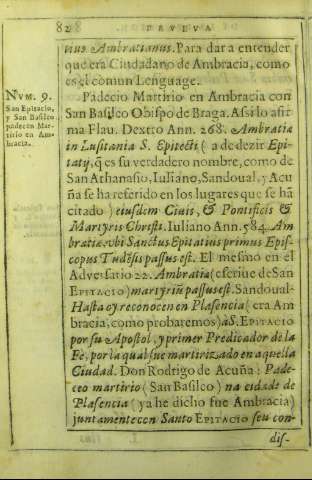 82 DE V E V A
tius Ambracianus. Para dar a entender
que era Ciudadano de Ambracia, como
es el comun Lenguage.
NVM. 9.
San Epitacio,
y San Basileo
padecen Mar-
tirio en Am-
bracia.
Padecio Martirio en Ambracia con
San Basileo Obispo de Braga. Assi lo afir
ma Flau. Dextro Ann. 268. Ambratia
in Lusitania S. Epitecti (a de dezir Epi-
tatÿ, q̃ es su verdadero nombre, como de
San Athanasio, Iuliano, Sandoual, y Acu
ña se ha referido en los lugares que se hã
citado) eiusdem Ciuis, & Pontificis &
Martyris Christi. Iuliano Ann. 584. Am
bratiæ vbi Sanctus Epitatius primus Epis-
copus Tudẽsis passus est. El mesmo en el
Aduersatio 22. Ambratia (escriue de San
EPITACIO) martyriũ passus est. Sandoual-
Hasta oy reconocen en Plasencia (era Am
bracia, como probaremos) à S. EPITACIO
por su Apostol, y primer Predicador de la
Fè, por la qual fue martirizado en aquella
Ciudad. Don Rodrigo de Acuña: Pade-
ceo martirio (San Basileo) na cidade de
Plasencia (ya he dicho fue Ambracia)
juntamente cen Santo EPITACIO seu con-
dis-